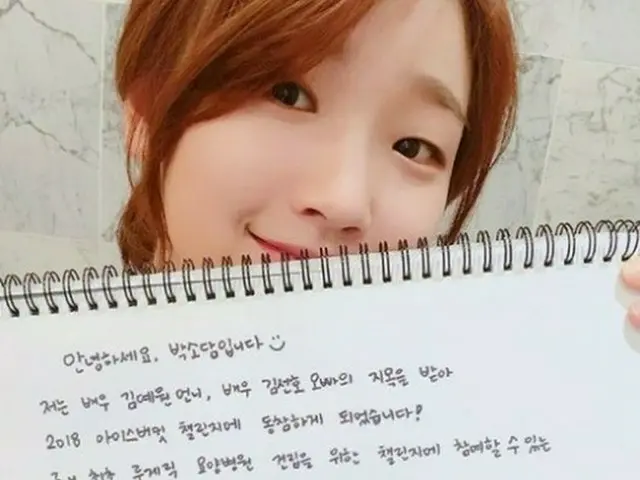 안녕하세요, 박소담입니다
저는 배우 김예원 언니, 배우 김선호 오빠의 지목을 받아
2018 아이스버킷 챌린지에 동참하게 되었습니다!
최초 루게릭 요양병원 건립을 위한 챌린지에 참여할 수 있는